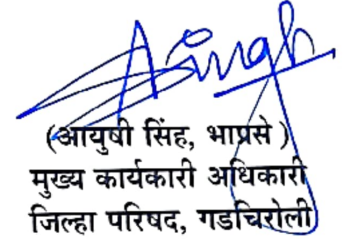 Asingh
(आयुषी सिंह, भाप्रसे )
मुख्य कार्यकारी अधिकारी
जिल्हा परिषद, गडचिरोली